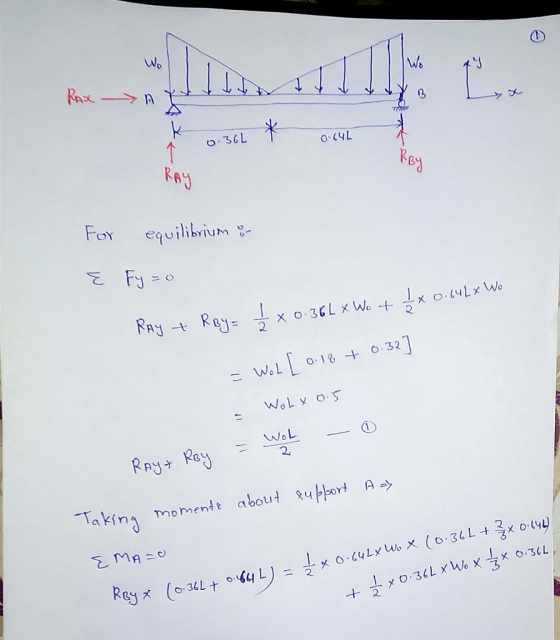 ①
W₀ W₀ y
RAx → A B x
0.36L 0.64L
RAy RBy
For equilibrium :-
Σ Fy = 0
RAy + RBy = 1/2 × 0.36L × W₀ + 1/2 × 0.64L × W₀
= W₀L [ 0.18 + 0.32 ]
= W₀L × 0.5
RAy + RBy = W₀L/2 — ①
Taking moments about support A ⇒
Σ MA = 0
RBy × (0.36L + 0.64L) = 1/2 × 0.64L × W₀ × (0.36L + 2/3 × 0.64L)
+ 1/2 × 0.36L × W₀ × 1/3 × 0.36L